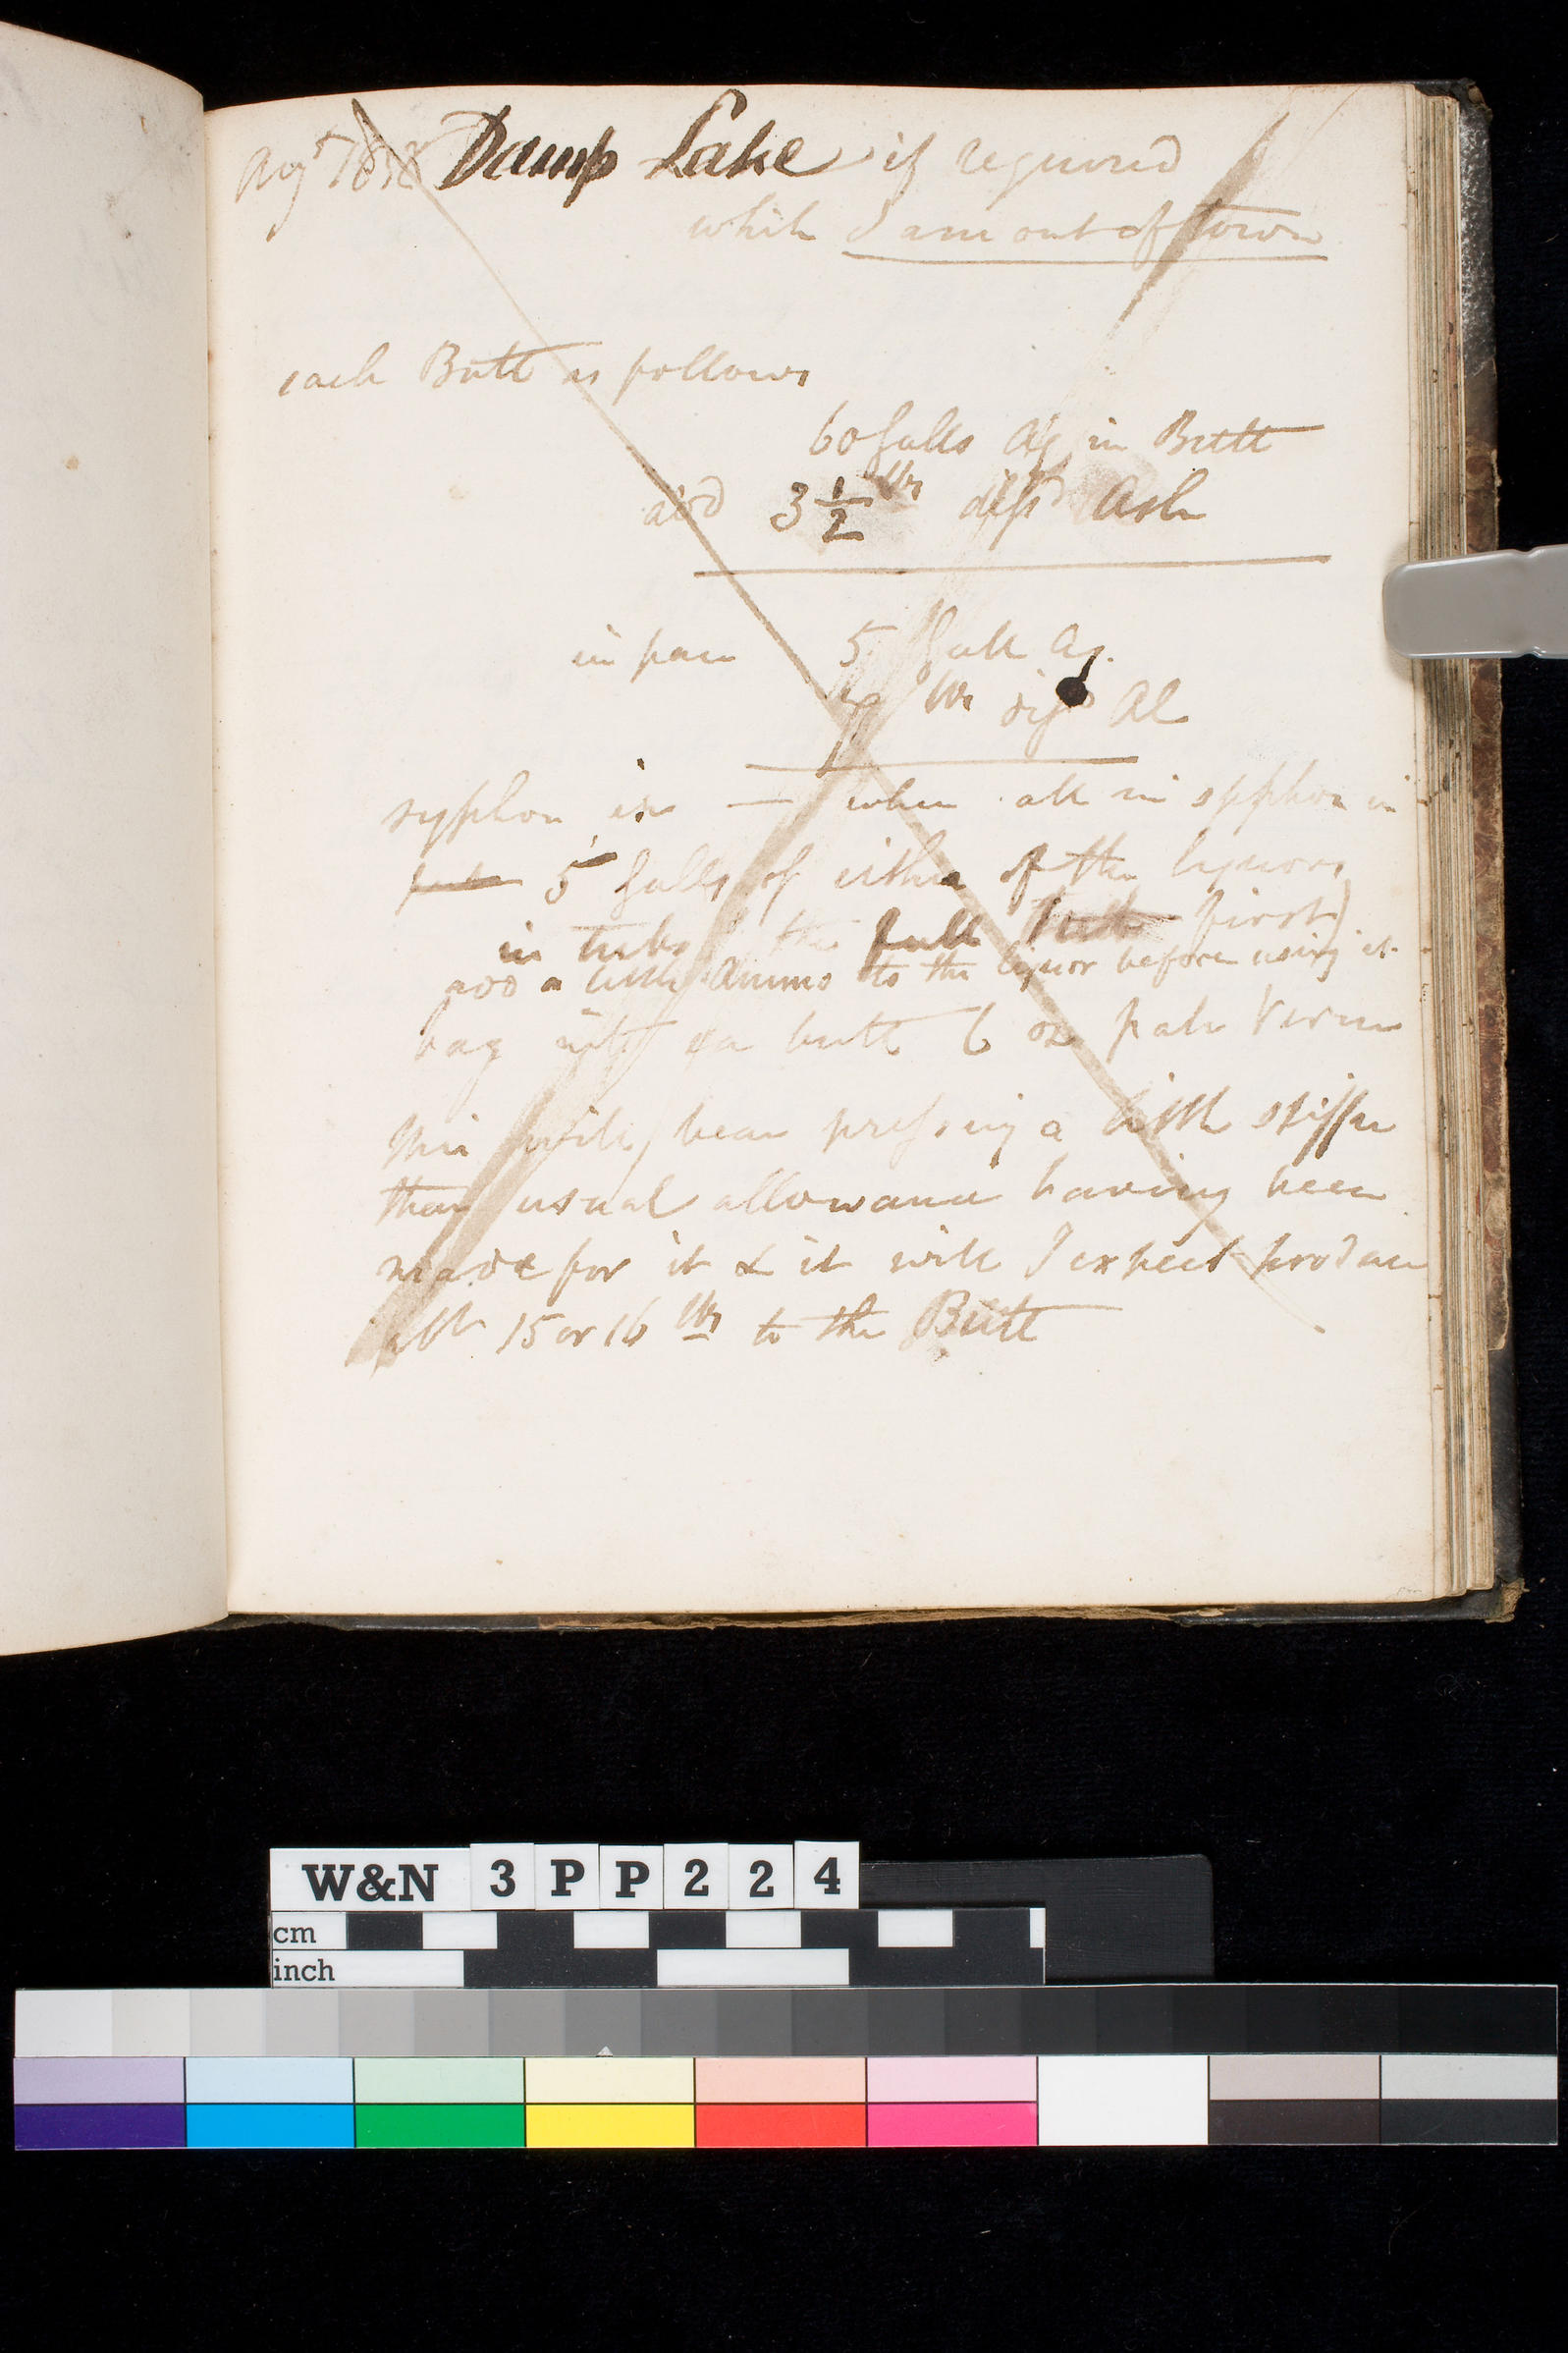 Augt 1858 Damp Lake if required
while I am out of town
each Butt as follows
60 Galls Aq in Butt
add 3 1/2 lbs dissd Ash
in pan 5 Gall Aq.
lbs disd Al
syphon in — when all in syphon in
5 Galls of either of the liquors
in tubs the full first)
add a little Ammo to the liquor before using it
bag into ea butt 6 oz pale Verm
this will bear pressing a little stiffer
than usual allowance having been
made for it & it will I expect produce
abt 15 or 16 lbs to the Butt
W&N 3PP224
cm
inch